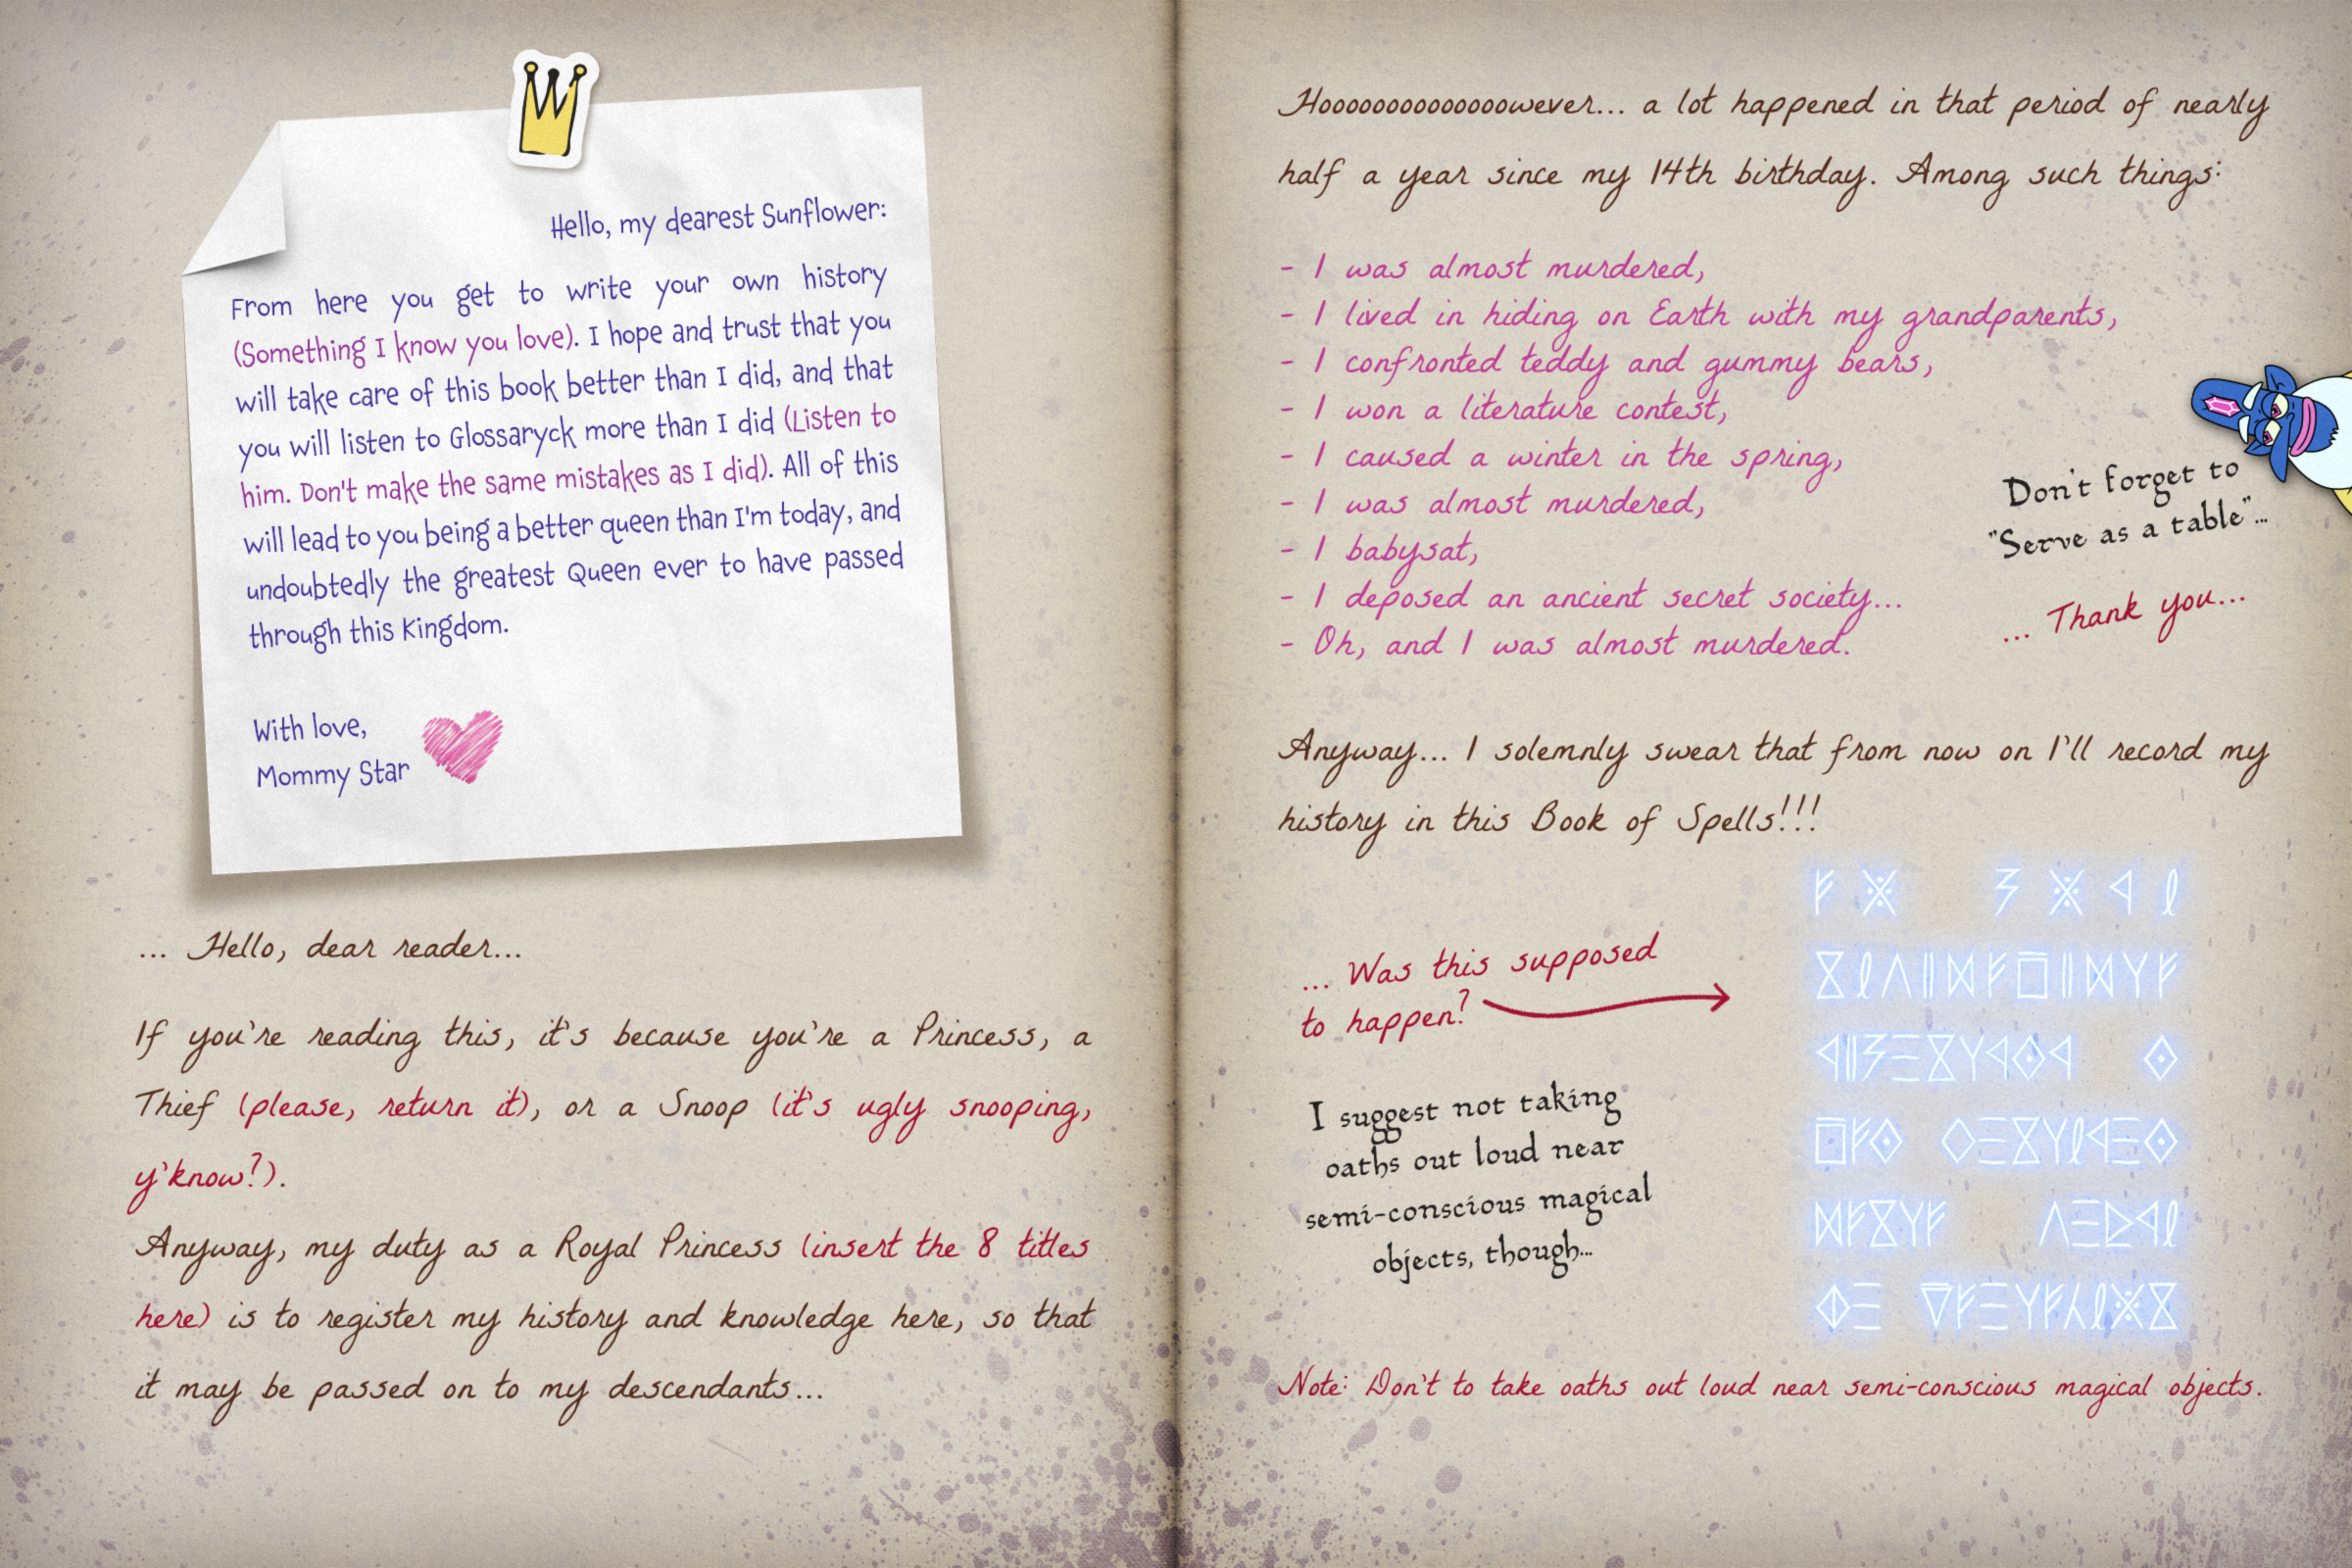 Hello, my dearest Sunflower:
From here you get to write your own history
(Something I know you love). I hope and trust that you
will take care of this book better than I did, and that
you will listen to Glossaryck more than I did (Listen to
him. Don't make the same mistakes as I did). All of this
will lead to you being a better queen than I'm today, and
undoubtedly the greatest Queen ever to have passed
through this Kingdom.
With love,
Mommy Star
... Hello, dear reader...
If you're reading this, it's because you're a Princess, a
Thief (please, return it), or a Snoop (it's ugly snooping,
y'know?).
Anyway, my duty as a Royal Princess (insert the 8 titles
here) is to register my history and knowledge here, so that
it may be passed on to my descendants...
Hoooooooooooooowever... a lot happened in that period of nearly
half a year since my 14th birthday. Among such things:
- I was almost murdered,
- I lived in hiding on Earth with my grandparents,
- I confronted teddy and gummy bears,
- I won a literature contest,
- I caused a winter in the spring,
- I was almost murdered,
- I babysat,
- I deposed an ancient secret society...
- Oh, and I was almost murdered.
Don't forget to
"Serve as a table"...
... Thank you...
Anyway... I solemnly swear that from now on I'll record my
history in this Book of Spells!!!
... Was this supposed
to happen?
I suggest not taking
oaths out loud near
semi-conscious magical
objects, though...
Note: Don't to take oaths out loud near semi-conscious magical objects.